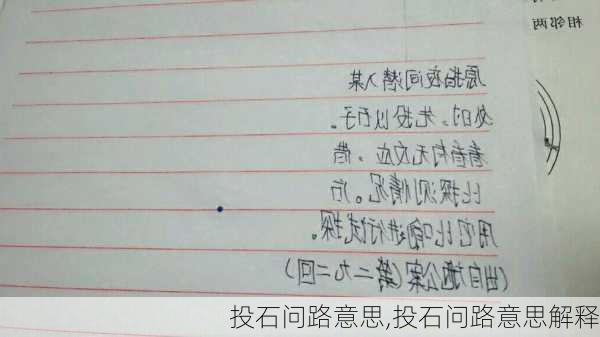 相邻两
原指夜间潜入某
处时。先投以石子。
看看有无反应。借
此探测情况。后
用它比喻进行试探。
(出自施公案(第二九二回)
投石问路意思,投石问路意思解释